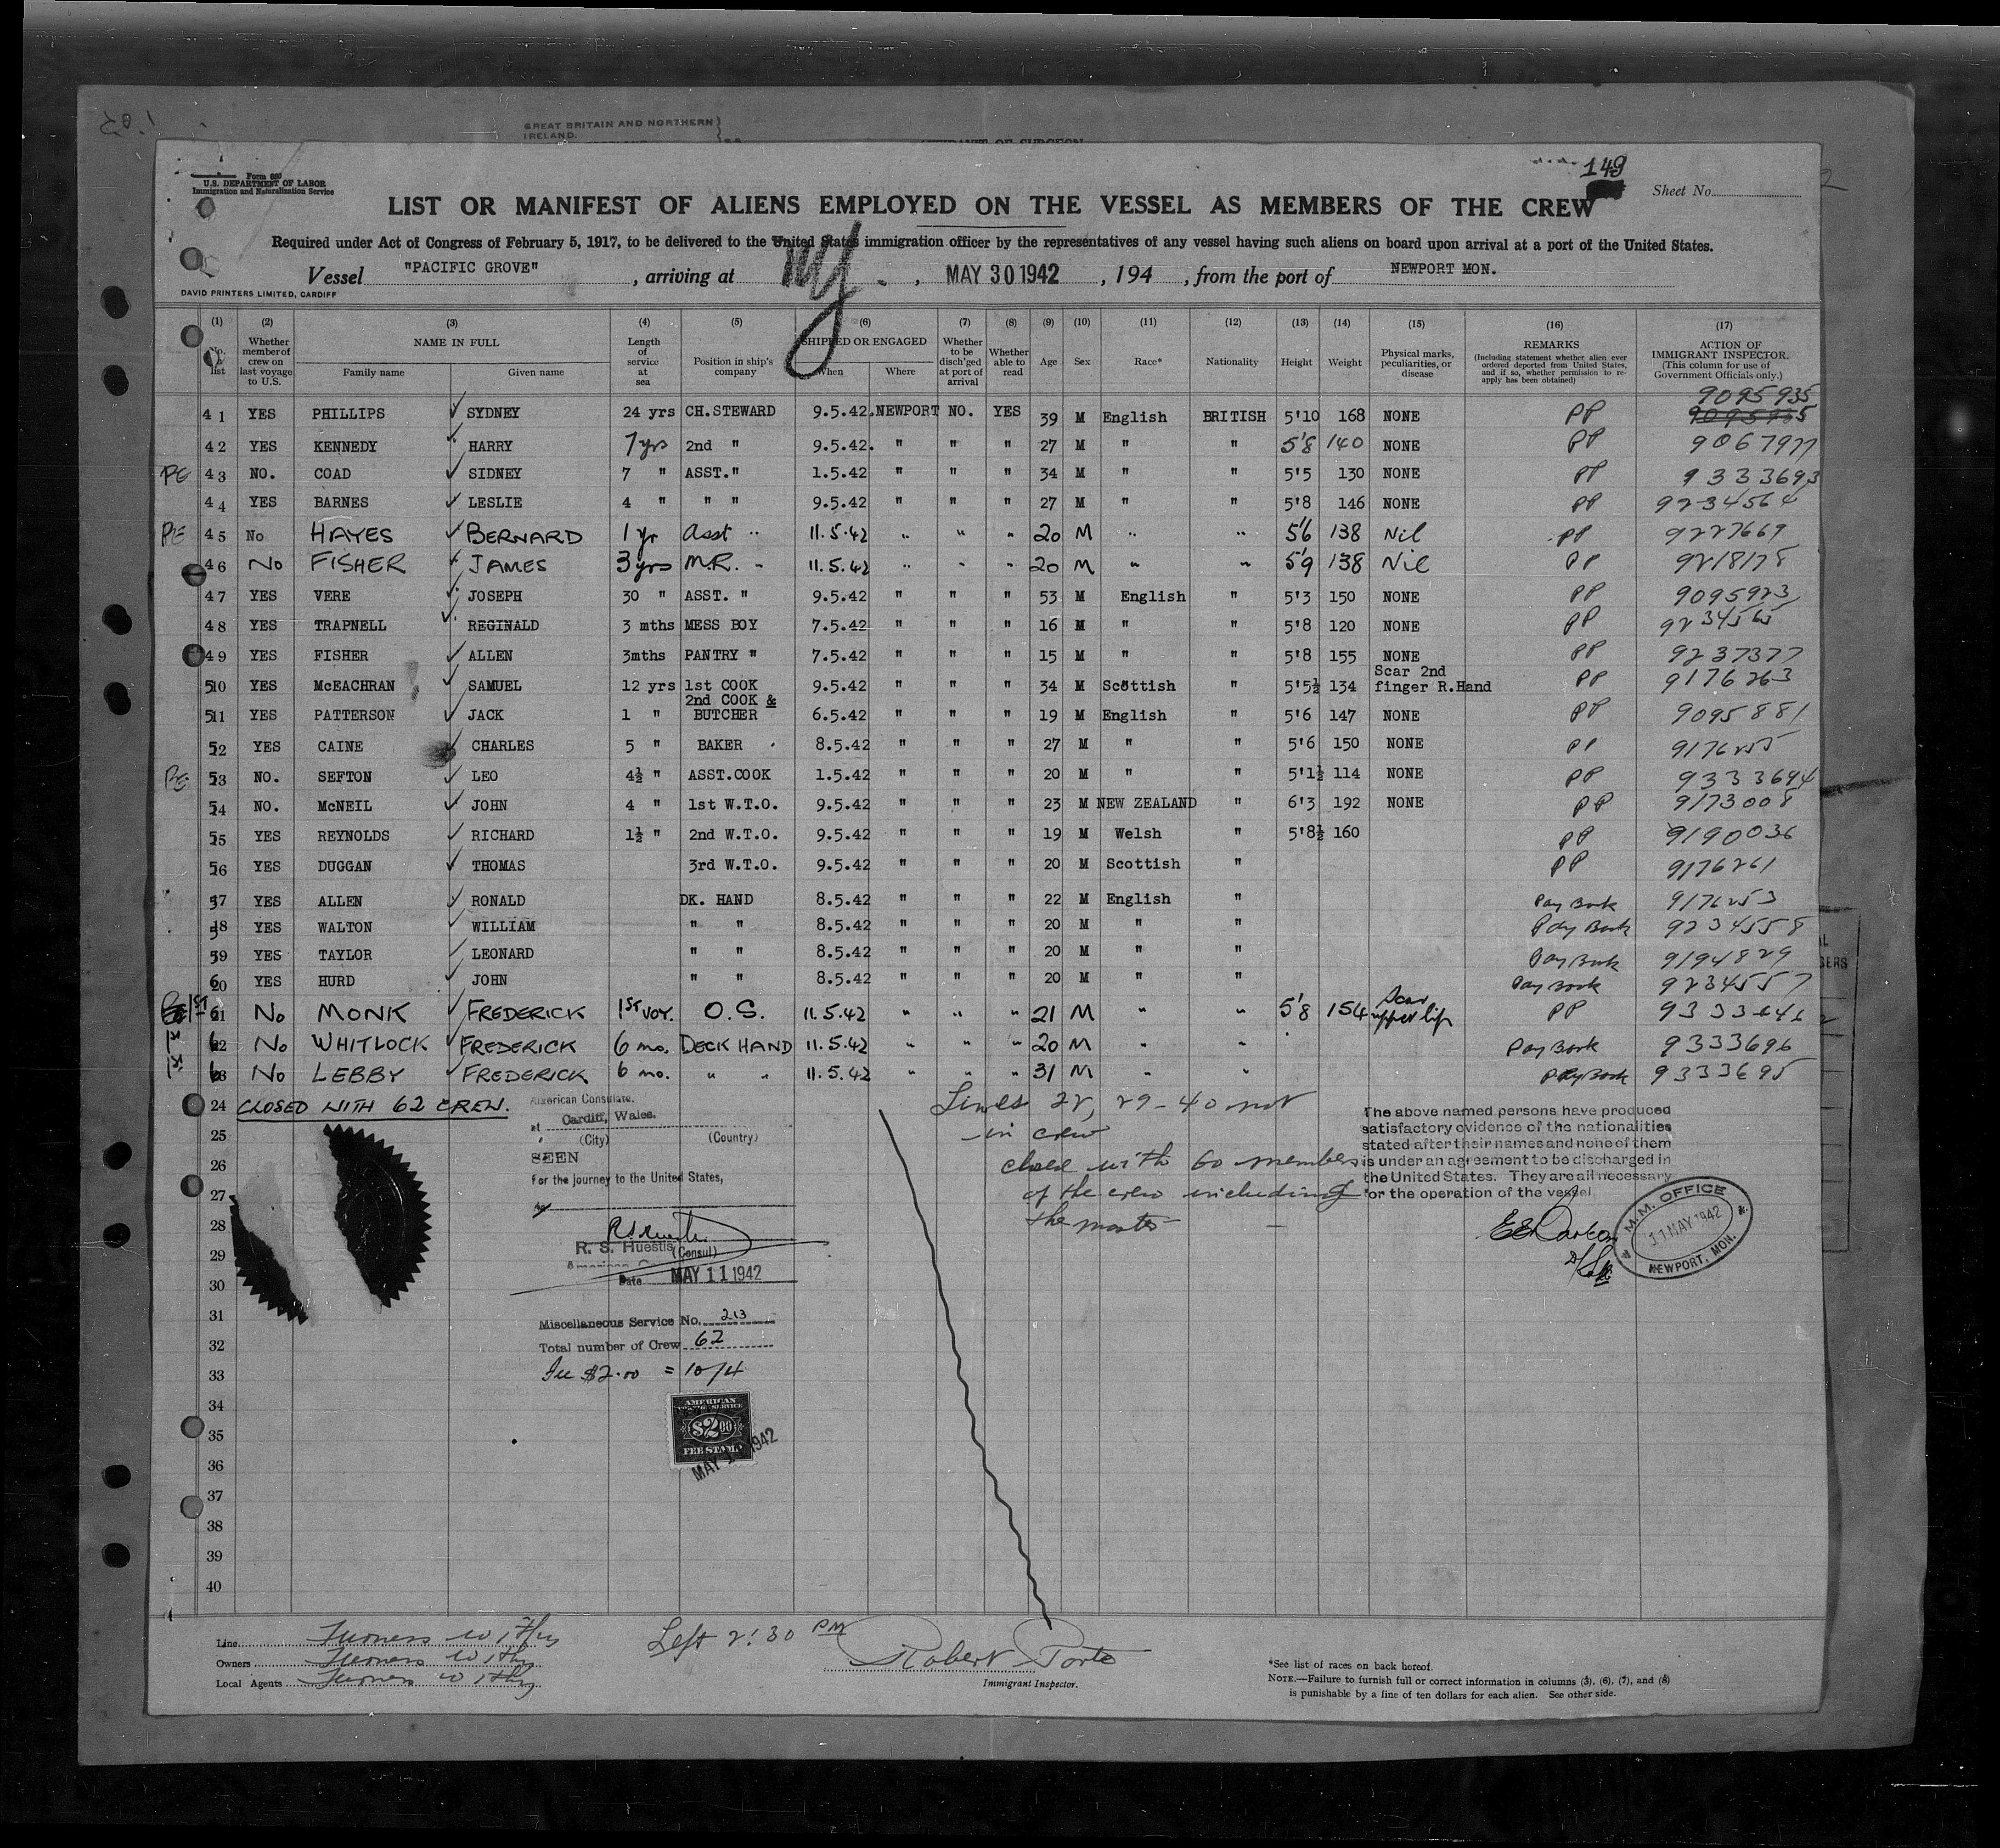 GREAT BRITAIN AND NORTHERN
IRELAND.
149
Form 680
U.S. DEPARTMENT OF LABOR
Immigration and Naturalization Service
Sheet No.
LIST OR MANIFEST OF ALIENS EMPLOYED ON THE VESSEL AS MEMBERS OF THE CREW
Required under Act of Congress of February 5, 1917, to be delivered to the United States immigration officer by the representatives of any vessel having such aliens on board upon arrival at a port of the United States.
Vessel "PACIFIC GROVE", arriving at NY., MAY 30 1942, 194, from the port of NEWPORT MON.
DAVID PRINTERS LIMITED, CARDIFF
(1) No. on list (2) Whether member of crew on last voyage to U.S. (3) NAME IN FULL Family name Given name (4) Length of service at sea (5) Position in ship's company (6) SHIPPED OR ENGAGED When Where (7) Whether to be disch'ged at port of arrival (8) Whether able to read (9) Age (10) Sex (11) Race* (12) Nationality (13) Height (14) Weight (15) Physical marks, peculiarities, or disease (16) REMARKS (Including statement whether alien ever ordered deported from United States, and if so, whether permission to re-apply has been obtained) (17) ACTION OF IMMIGRANT INSPECTOR. (This column for use of Government Officials only.)
9095935
41 YES PHILLIPS SYDNEY 24 yrs CH.STEWARD 9.5.42. NEWPORT NO. YES 39 M English BRITISH 5'10 168 NONE PP
42 YES KENNEDY HARRY 7 yrs 2nd " 9.5.42. " " " 27 M " " 5'8 140 NONE PP 9067977
PE 43 NO. COAD SIDNEY 7 " ASST." 1.5.42 " " " 34 M " " 5'5 130 NONE PP 9333693
44 YES BARNES LESLIE 4 " " " 9.5.42 " " " 27 M " " 5'8 146 NONE PP 9234564
PE 45 No HAYES BERNARD 1 yr Asst " 11.5.42 " " " 20 M " " 5'6 138 Nil PP 9227669
46 No FISHER JAMES 3 yrs M.R. " 11.5.42 " " " 20 M " " 5'9 138 Nil PP 9218178
47 YES VERE JOSEPH 30 " ASST. " 9.5.42 " " " 53 M English " 5'3 150 NONE PP 9095923
48 YES TRAPNELL REGINALD 3 mths MESS BOY 7.5.42 " " " 16 M " " 5'8 120 NONE PP 9234565
49 YES FISHER ALLEN 3mths PANTRY " 7.5.42 " " " 15 M " " 5'8 155 NONE PP 9237377
510 YES McEACHRAN SAMUEL 12 yrs 1st COOK 9.5.42 " " " 34 M Scottish " 5'5½ 134 Scar 2nd finger R.Hand PP 9176263
511 YES PATTERSON JACK 1 " 2nd COOK & BUTCHER 6.5.42 " " " 19 M English " 5'6 147 NONE PP 9095881
52 YES CAINE CHARLES 5 " BAKER 8.5.42 " " " 27 M " " 5'6 150 NONE PP 9176255
PE 53 NO. SEFTON LEO 4½ " ASST.COOK 1.5.42 " " " 20 M " " 5'1½ 114 NONE PP 9333694
54 NO. McNEIL JOHN 4 " 1st W.T.O. 9.5.42 " " " 23 M NEW ZEALAND " 6'3 192 NONE PP 9173008
55 YES REYNOLDS RICHARD 1½ " 2nd W.T.O. 9.5.42 " " " 19 M Welsh " 5'8½ 160 PP 9190036
56 YES DUGGAN THOMAS 3rd W.T.O. 9.5.42 " " " 20 M Scottish " PP 9176261
57 YES ALLEN RONALD DK. HAND 8.5.42 " " " 22 M English " Pay Book 9176253
58 YES WALTON WILLIAM " " 8.5.42 " " " 20 M " " Pay Book 9234558
59 YES TAYLOR LEONARD " " 8.5.42 " " " 20 M " " Pay Book 9194829
60 YES HURD JOHN " " 8.5.42 " " " 20 M " " Pay Book 9234557
61 No MONK FREDERICK 1ST VOY. O.S. 11.5.42 " " " 21 M " " 5'8 154 Scar upper lip PP 9333646
62 No WHITLOCK FREDERICK 6 mo. DECK HAND 11.5.42 " " " 20 M " " Pay Book 9333696
63 No LEBBY FREDERICK 6 mo. " " 11.5.42 " " " 31 M " " Pay Book 9333695
24 CLOSED WITH 62 CREW.
Lines 28, 29-40 not
in crew
closed with 60 members
of the crew including
the master
American Consulate,
at Cardiff, Wales.
(City) (Country)
SEEN
For the journey to the United States,
R. S. Huestis
(Consul)
Date MAY 11 1942
Miscellaneous Service No. 213
Total number of Crew 62
Fee $2.00 = 10/4
AMERICAN
FOREIGN SERVICE
$2.00
FEE STAMP
MAY 1942
The above named persons have produced
satisfactory evidence of the nationalities
stated after their names and none of them
is under an agreement to be discharged in
the United States. They are all necessary
for the operation of the vessel
M.M. OFFICE
11 MAY 1942
NEWPORT, MON.
25
26
27
28
29
30
31
32
33
34
35
36
37
38
39
40
Line Furness Withy
Owners Furness Withy
Local Agents Furness Withy
Left 2:30 PM
Robert Porto
Immigrant Inspector.
*See list of races on back hereof.
NOTE.—Failure to furnish full or correct information in columns (3), (6), (7), and (8)
is punishable by a fine of ten dollars for each alien. See other side.